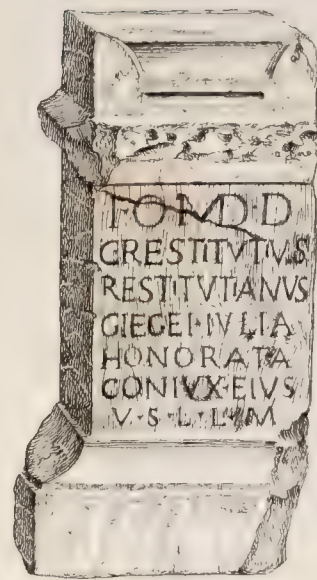 I·O·M·D·D
GRESTITVTIVS
RESTITVTIANVS
GIEGEI·IVLIA
HONORATA
CONIVX·EIVS
V·S·L·L·M